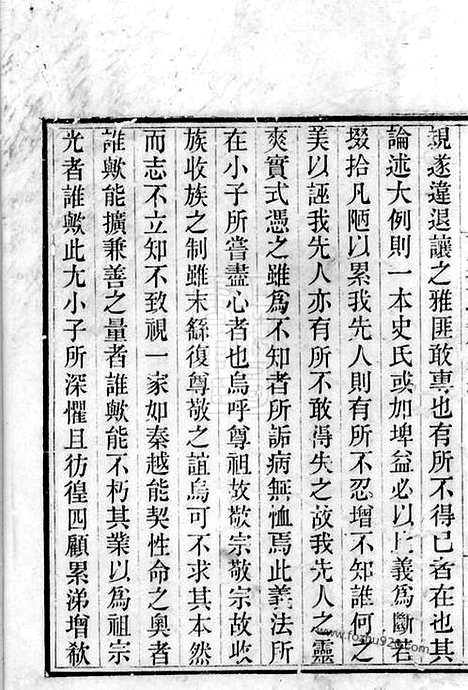 親遂違退讓之雅匪敢專也有所不得已者在也其
論述大例則一本史氏或加埤益必以比義爲斷若
掇拾凡陋以累我先人則有所不忍增不知誰何之
美以誣我先人亦有所不敢得失之故我先人之靈
爽實式憑之雖爲不知者所詬病無恤焉此義法所
在小子所嘗盡心者也烏呼尊祖故敬宗敬宗故收
族收族之制雖末繇復尊敬之誼烏可不求其本然
而志不立知不致視一家如秦越能契性命之奧者
誰歟能擴兼善之量者誰歟能不朽其業以爲祖宗
光者誰歟此尢小子所深懼且彷徨四顧累涕增欷
www.foshu92.com